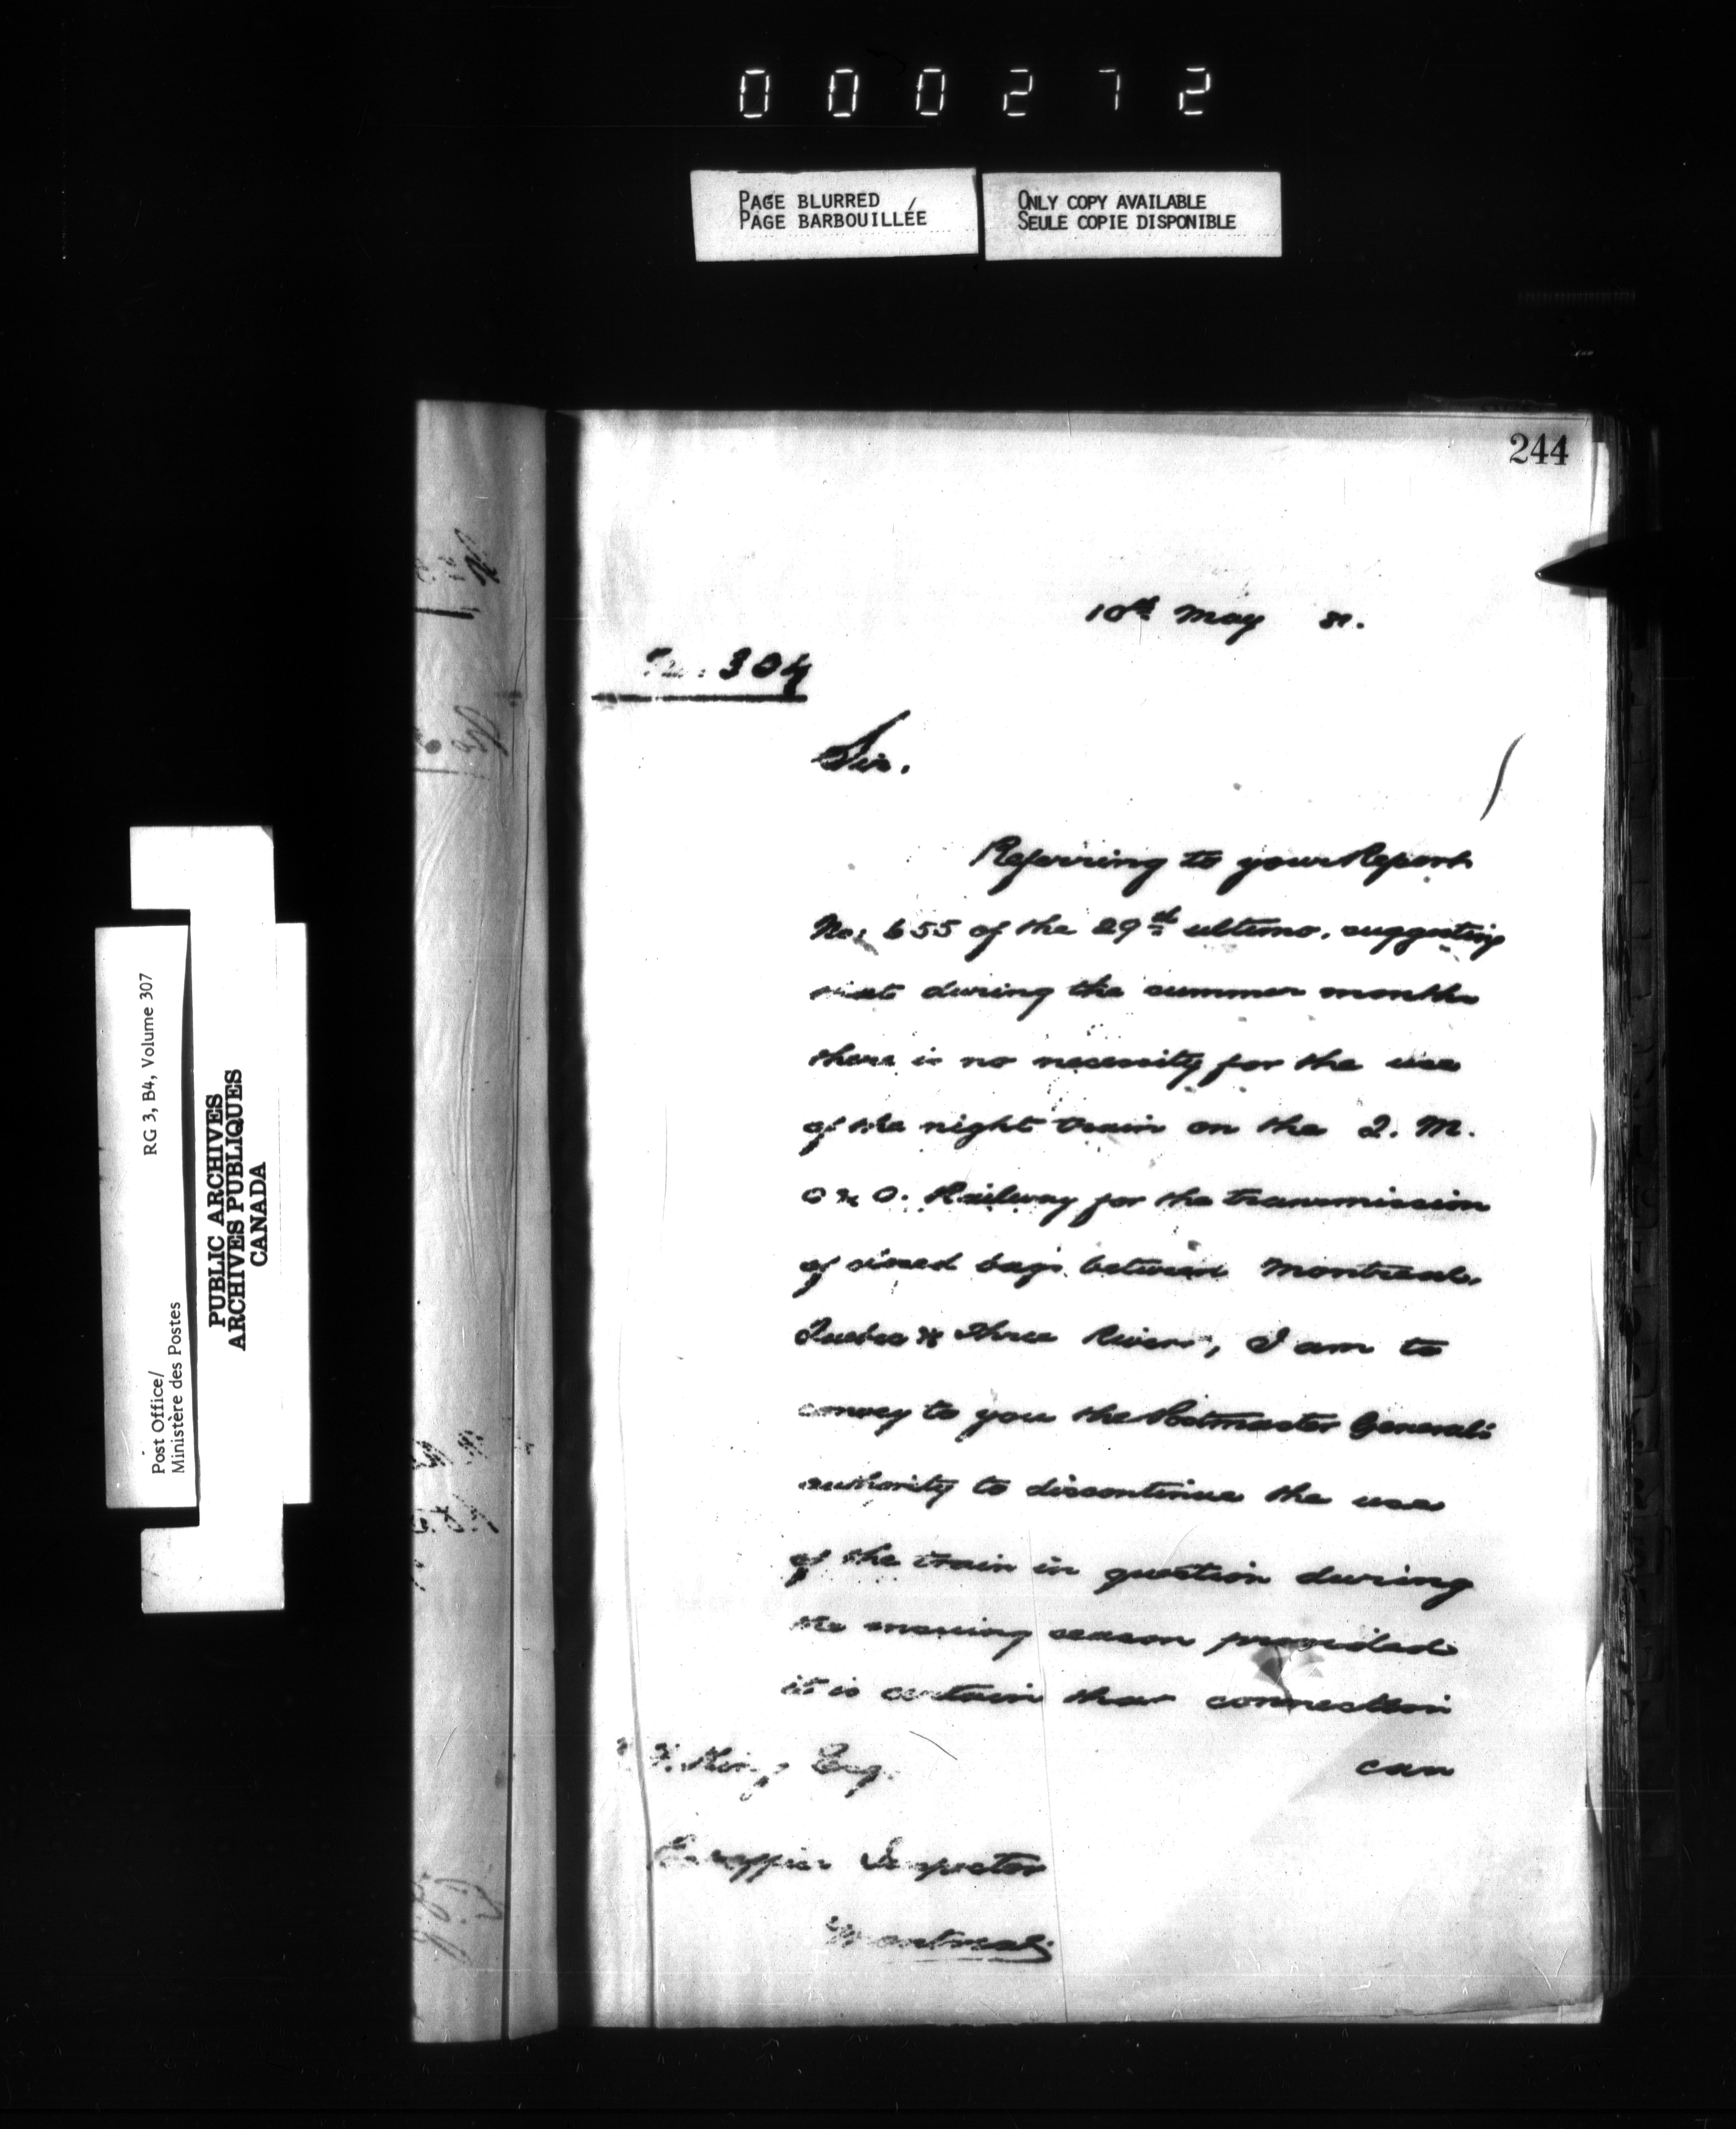 000272
PAGE BLURRED
PAGE BARBOUILLÉE
ONLY COPY AVAILABLE
SEULE COPIE DISPONIBLE
244
10th May 81.
No. 304
Sir.
Referring to your Report
No: 655 of the 29th ultimo, suggesting
that during the summer months
there is no necessity for the use
of the night train on the Q. M.
O & O. Railway for the transmission
of mixed bags between Montreal,
Quebec & Three Rivers, I am to
convey to you the Postmaster General's
authority to discontinue the use
of the train in question during
the ensuing season provided
it is certain that connection
can
King Esq.
P. Office Inspector
Montreal
Post Office/
Ministère des Postes
RG 3, B4, Volume 307
PUBLIC ARCHIVES
ARCHIVES PUBLIQUES
CANADA